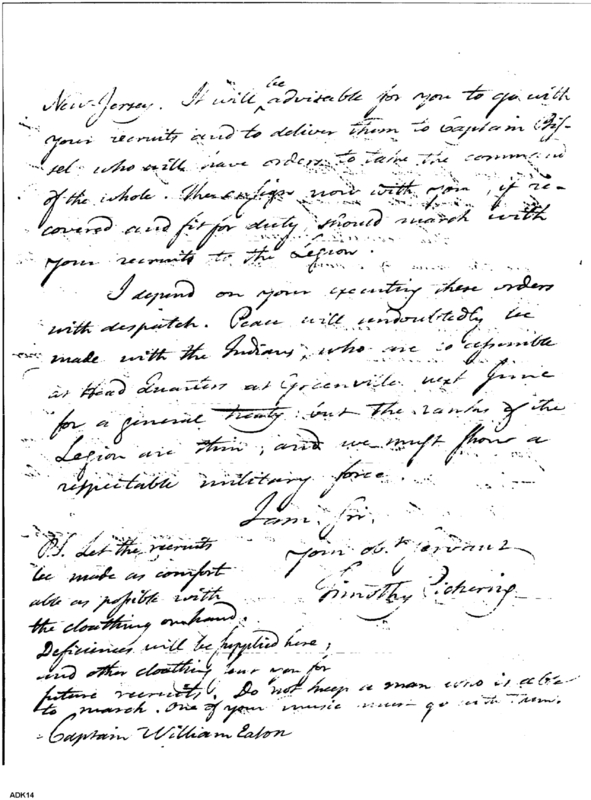 New Jersey. It will be advisable for you to go with
your recruits and to deliver them to Captain Bis-
sel who will have orders to take the command
of the whole. The ensign now with you, if re-
covered and fit for duty should march with
your recruits to the Legion.
I depend on your executing these orders
with despatch. Peace will undoubtedly be
made with the Indians, who are to assemble
at Head Quarters at Greenville next June
for a general treaty but the ranks of the
Legion are thin; and we must show a
respectable military force.
I am, Sir,
your obt. servant
Timothy Pickering
P.S. Let the recruits
be made as comfort
able as possible with
the cloathing on hand.
Deficiencies will be supplied here;
and other cloathing for
future recruits. Do not keep a man who is able
to march. One of your music must go with them.
Captain William Eaton
ADK14